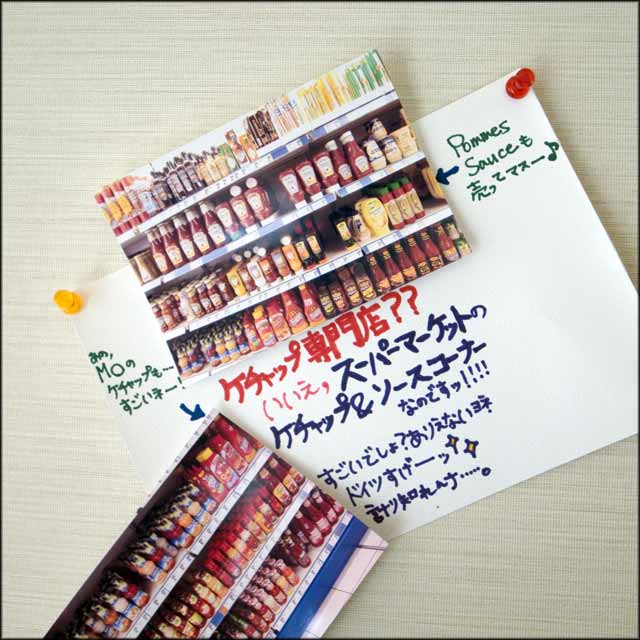 Pommes
Sauceも
売ってマスー♪
あの,
MOの
ケチャップも…
すごいネー!
ケチャップ専門店??
いいえ,スーパーマーケットの
ケチャップ&ソースコーナー
なのですッ!!!
すごいでしょ?ありえないヨネ
ドイツすげーーッ!
計り知れんナ……。